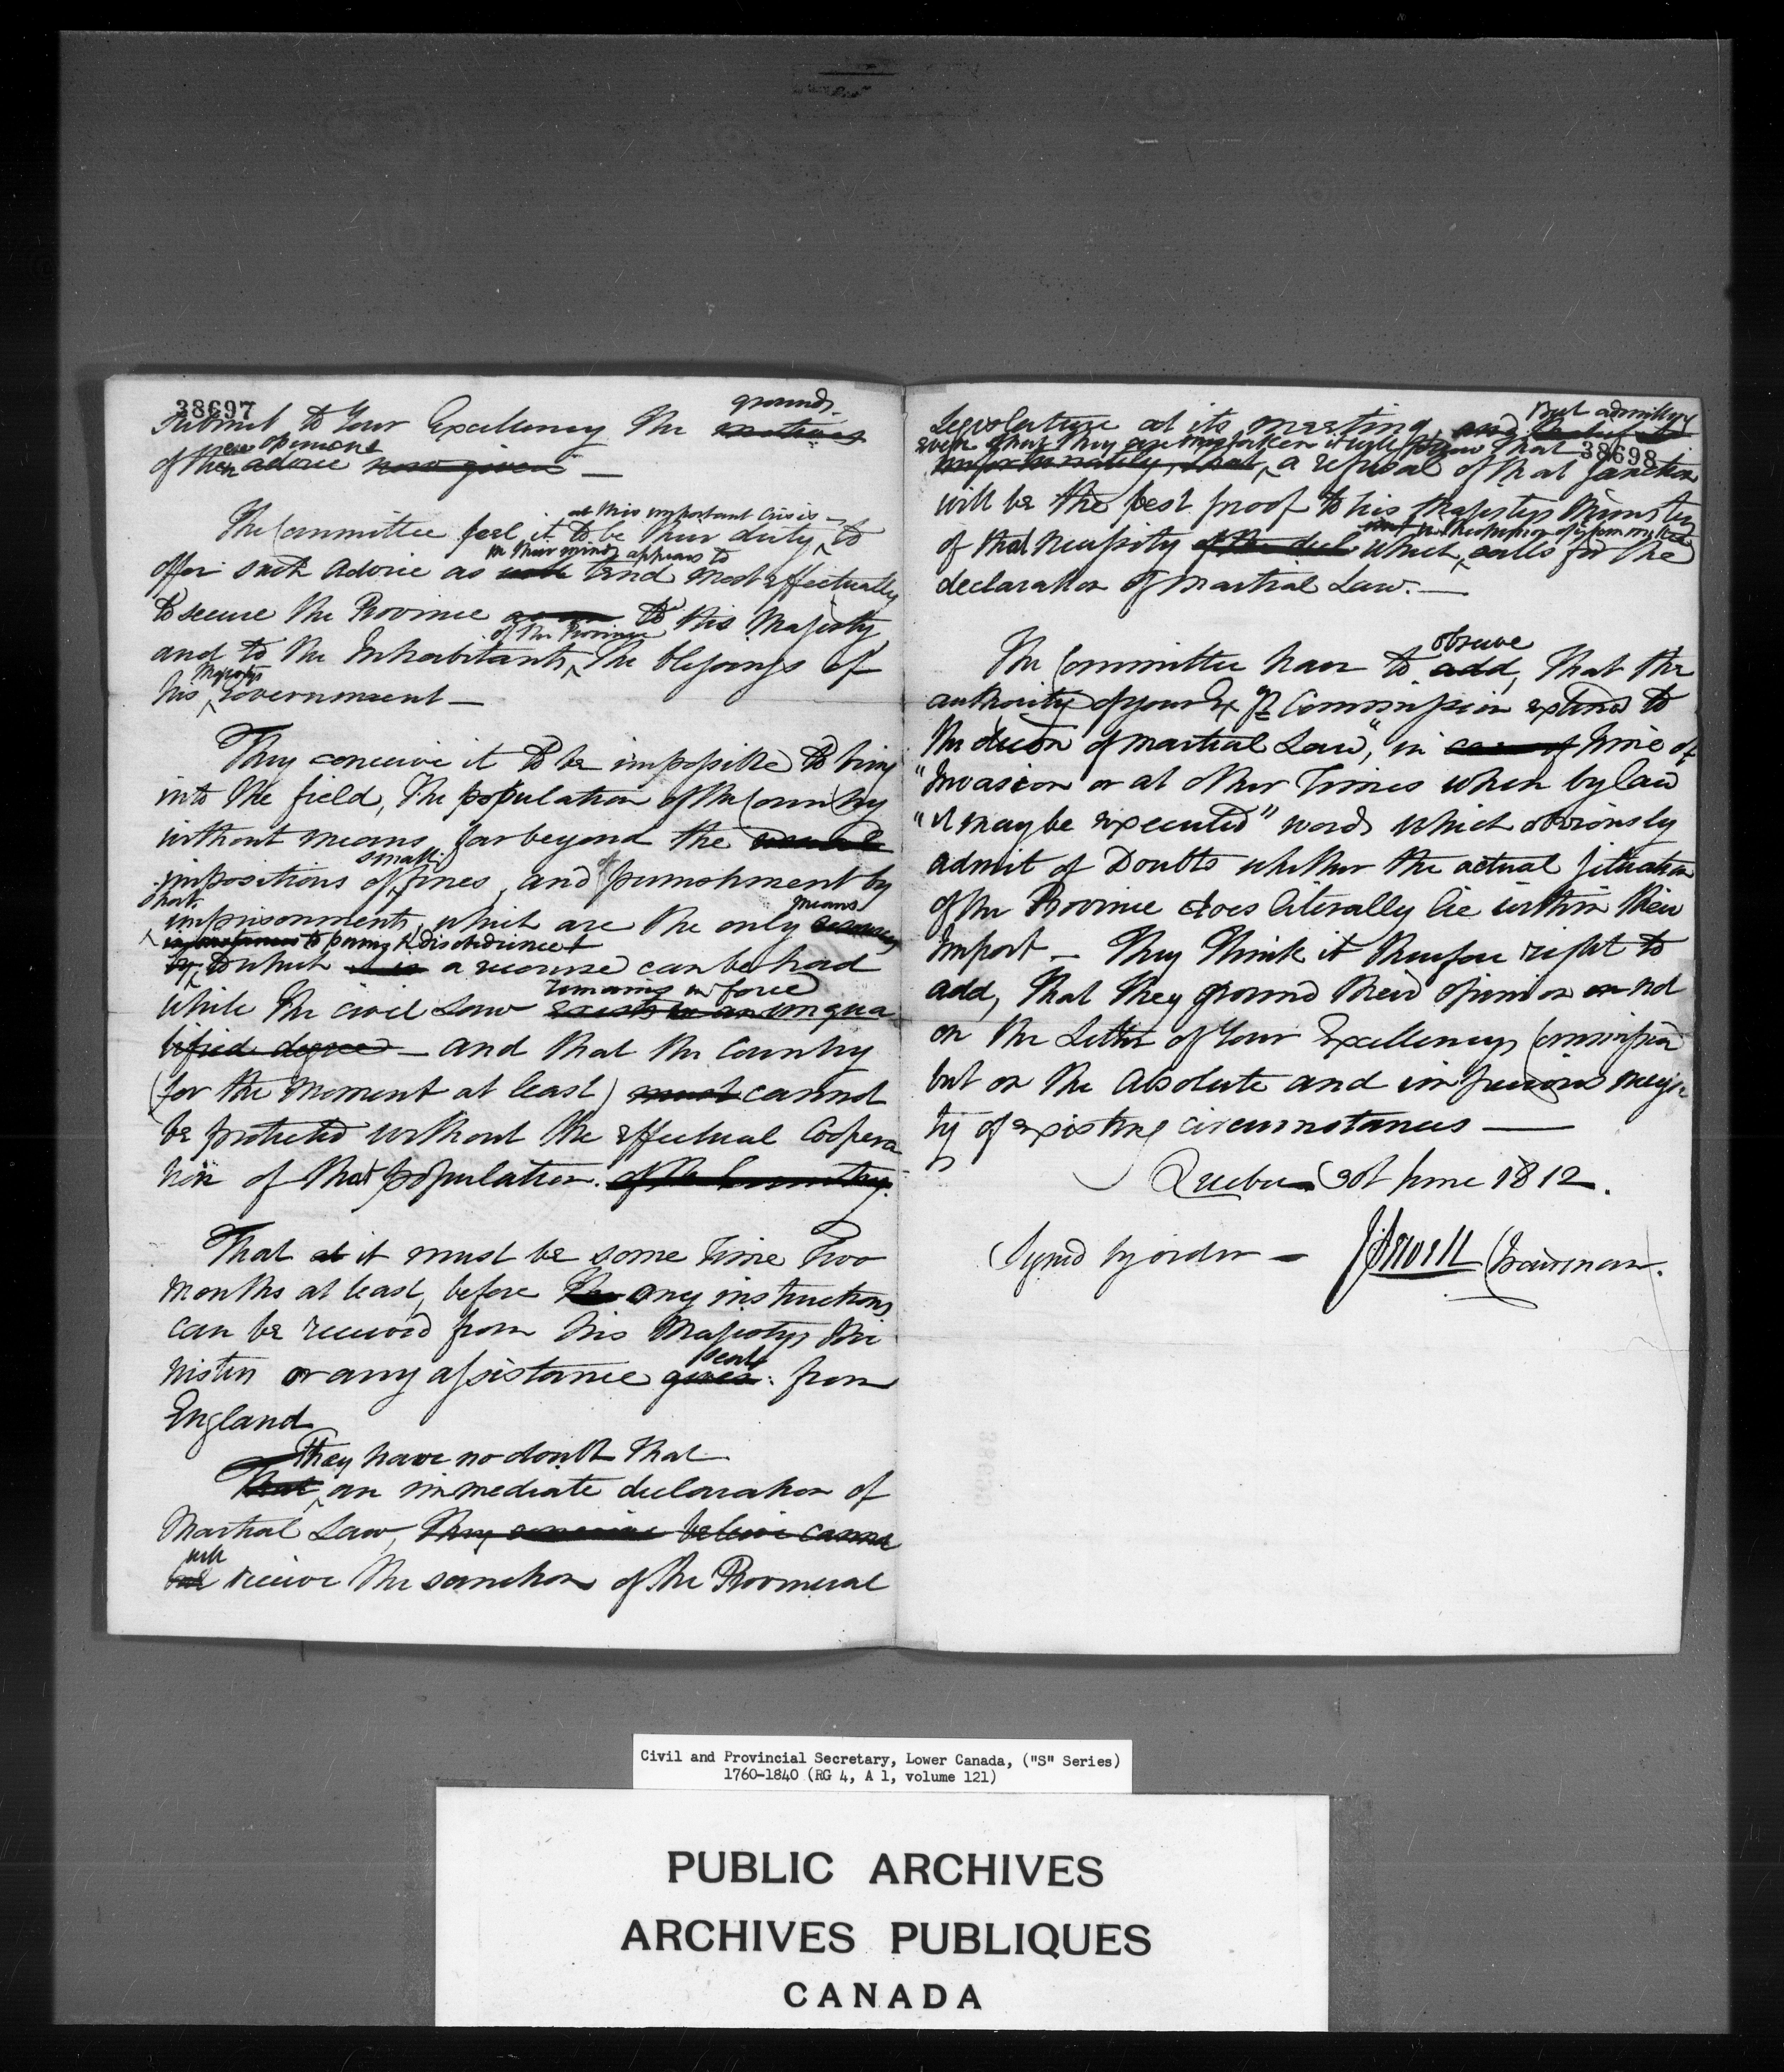 38697
grounds
submit to Your Excellency the motives
opinions
of their advice now given —
at this important Crisis
The Committee feel it to be their duty, to
in their minds appears to
offer such advice as will tend most effectually
to secure the Province to His Majesty
of the Province
and to the Inhabitants, the blessings of
Majestys
his Government —
They conceive it to be impossible to bring
into the field, the population of the Country
without means far beyond the
small
impositions of fines, and of punishment by
short
means
imprisonments, which are the only
to punish disobedience
by to which it is a recourse can be had
remains in force
while the civil Law exists in an unqua
lified degree — and that the Country
(for the Moment at least) must cannot
be protected without the effectual Coopera
tion of that population. of the Country.
That it must be some time Two
Months at least, before the any instructions
can be received from his Majestys Mi
sent
nisters or any assistance given from
England
They have no doubt that
That an immediate declaration of
Martial Law, they conceive believe cannot
will
but receive the sanction of the Provincial
But admitting
Legislature at its meeting, and
even that they are mistaken it will follow that
38698
unfortunately, that, a refusal of that sanction
will be the best proof to his Majestys Ministers
in the
of that necessity of the decl which calls for the
declaration of Martial Law. —
observe
The Committee have to add, that the
authority of your Exys Commission extends to
the decon of martial Law", in case of time of
"Invasion or at other Times when by law
"it may be executed" words which obviously
admit of Doubts whether the actual situation
of the Province does literally lie within their
import — They think it therefore right to
add, that they ground their opinion not
on the Letter of Your Excellencys Commission
but on the absolute and imperious necessi
ty of existing circumstances —
Quebec 30t June 1812.
Signed by order — J Sewell Chairman.
Civil and Provincial Secretary, Lower Canada, ("S" Series)
1760-1840 (RG 4, A 1, volume 121)
PUBLIC ARCHIVES
ARCHIVES PUBLIQUES
CANADA